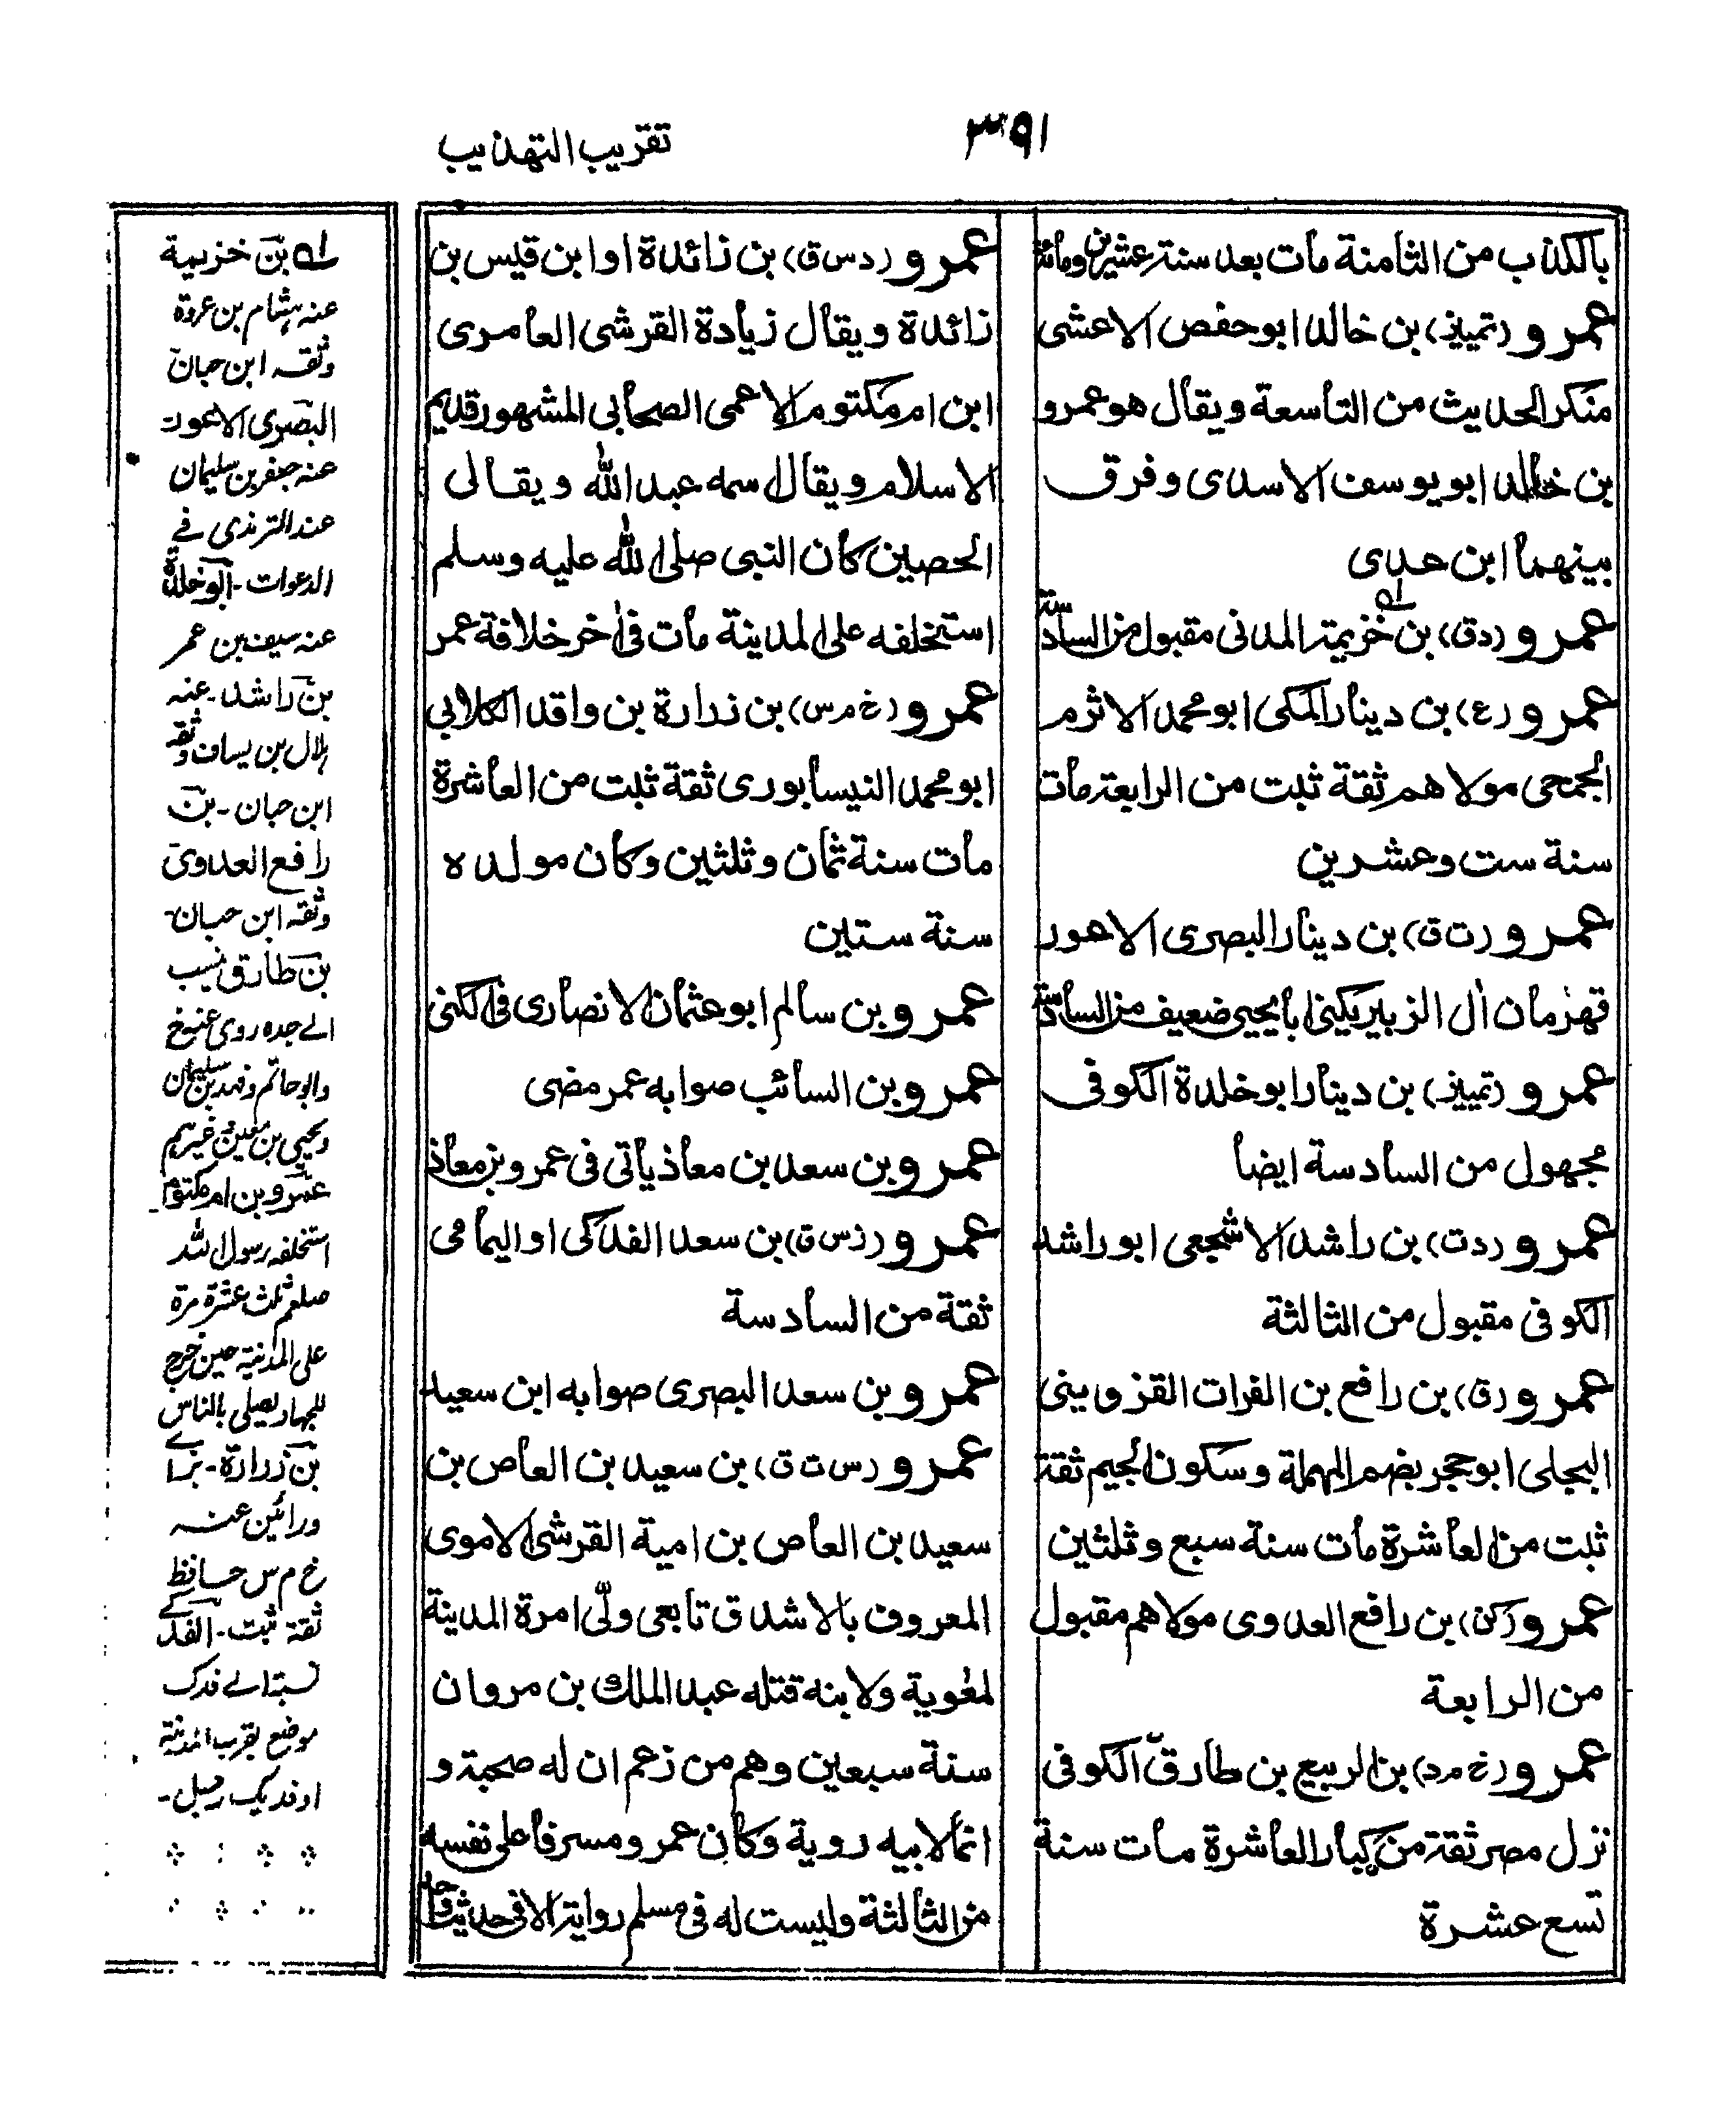 ٣٩١
تقريب التهذيب
بالكذب من الثامنة مات بعد سنة عشرين ومائة
عمرو (تمييز) بن خالد ابو حفص الاعشى
منكر الحديث من التاسعة ويقال هو عمرو
بن خالد ابو يوسف الاسدى وفرق
بينهما ابن عدى
عمرو (د ق) بن خزيمة المدنى مقبول من السادسة
عمرو (ع) بن دينار المكى ابو محمد الاثرم
الجمحى مولاهم ثقة ثبت من الرابعة مات
سنة ست وعشرين
عمرو (ت ق) بن دينار البصرى الاعور
قهرمان اٰل الزبير يكنى ابا يحيى ضعيف من السادسة
عمرو (تمييز) بن دينار ابو خلدة الكوفى
مجهول من السادسة ايضا
عمرو (د ت) بن راشد الاشجعى ابو راشد
الكوفى مقبول من الثالثة
عمرو (ق) بن رافع بن الفرات القزوينى
البجلى ابو حجر بضم المهملة وسكون الجيم ثقة
ثبت من العاشرة مات سنة سبع وثلثين
عمرو (كن) بن رافع العدوى مولاهم مقبول
من الرابعة
عمرو (خ مد) بن الربيع بن طارق الكوفى
نزل مصر ثقة من كبار العاشرة مات سنة
تسع عشرة
عمرو (د س ق) بن زائدة او ابن قيس بن
زائدة ويقال زيادة القرشى العامرى
ابن ام مكتوم الاعمى الصحابى المشهور قديم
الاسلام ويقال اسمه عبد الله ويقال
الحصين كان النبى صلى الله عليه وسلم
استخلفه على المدينة مات فى اٰخر خلافة عمر
عمرو (خ م س) بن زرارة بن واقد الكلابى
ابو محمد النيسابورى ثقة ثبت من العاشرة
مات سنة ثمان وثلثين وكان مولده
سنة ستين
عمرو بن سالم ابو عثمان الانصارى فى الكنى
عمرو بن السائب صوابه عمر مضى
عمرو بن سعد بن معاذ ياتى فى عمرو بن معاذ
عمرو (ز س ق) بن سعد الفدكى او اليمامى
ثقة من السادسة
عمرو بن سعد البصرى صوابه ابن سعيد
عمرو (س ت ق) بن سعيد بن العاص بن
سعيد بن العاص بن امية القرشى الاموى
المعروف بالاشدق تابعى ولّى امرة المدينة
لمعٰوية ولابنه قتله عبد الملك بن مروان
سنة سبعين وهم من زعم ان له صحبة و
انما لابيه روية وكان عمرو مسرفا على نفسه
من الثالثة وليست له فى مسلم رواية الا فى حديث واحد
له بن خزيمة
عنه هشام بن عروة
وثقه ابن حبان
البصرى الاعور
عنه جعفر بن سليمان
عند الترمذى فے
الدعوات - ابو خلدة
عنه سيف بن عمر
بن راشد - عنه
هلال بن يساف وثقه
ابن حبان - بن
رافع العدوى
وثقه ابن حبان -
بن طارق نسب
الے جده روى عنه خ
وابو حاتم وفهد بن سليمان
ويحيى بن معين وغيرهم
عمرو بن ام مكتوم -
استخلفه رسول الله
صلعم ثلث عشرة مرة
على المدينة حين خرج
للجهاد يصلى بالناس
بن زرارة - بزاے
ورائين عنه
خ م س حافظ
ثقة ثبت - الفدكے
نسبة الے فدك
موضع بقرب المدينة
او فديك رجل -